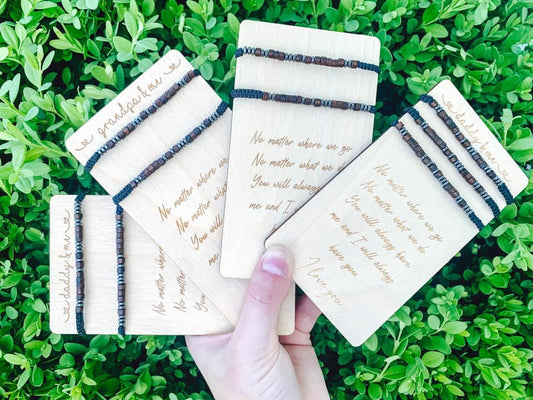 daddy & me
No matter
No matter
You will
grandpa & me
No matter where we
No matter what
You will always
me and
No matter where we go
No matter what we do
You will always
me and I
daddy & me
No matter where we go
No matter what we do
You will always have
me and I will always
have you.
I love you.